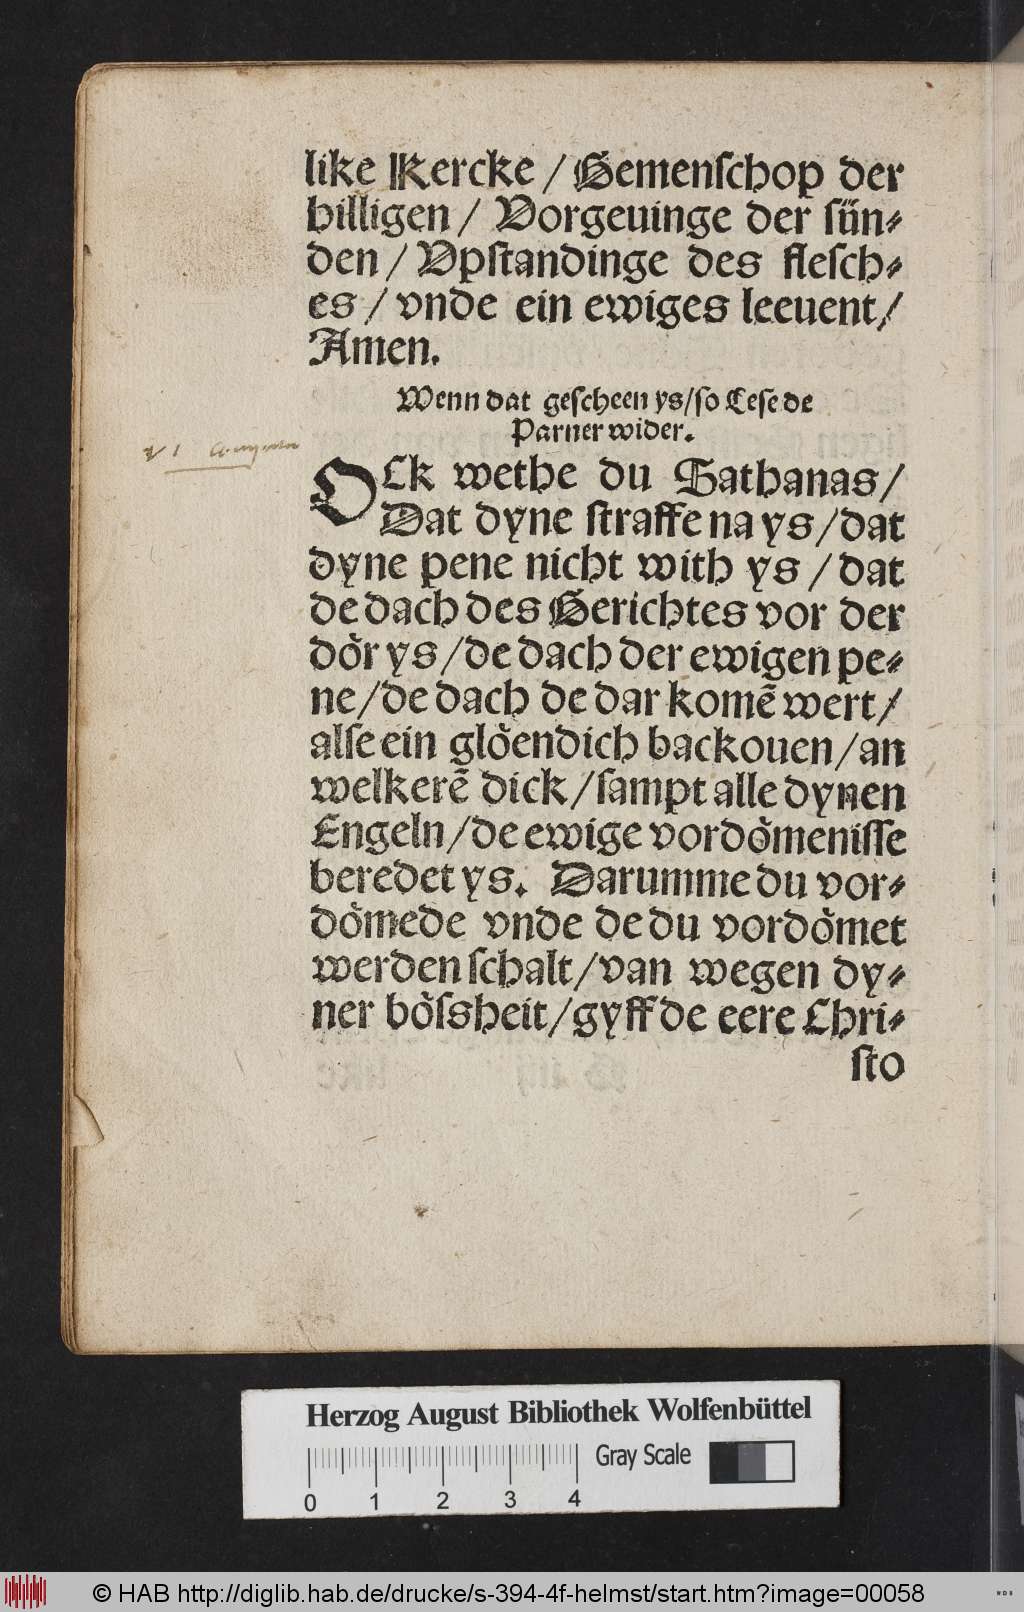 like Kercke / Gemenſchop der
hilligen / Vorgeuinge der ſün⸗
den / Vpſtandinge des fleſch⸗
es / vnde ein ewiges leeuent /
Amen.
Wenn dat geſcheen ys / ſo Leſe de
Parner wider.
OCk wethe du Sathanas /
Dat dyne ſtraffe na ys / dat
dyne pene nicht with ys / dat
de dach des Gerichtes vor der
doͤr ys / de dach der ewigen pe⸗
ne / de dach de dar komẽ wert /
alſe ein gloͤendich backouen / an
welkerẽ dick / ſampt alle dynen
Engeln / de ewige vordoͤmeniſſe
beredet ys. Darumme du vor⸗
doͤmede vnde de du vordoͤmet
werden ſchalt / van wegen dy⸗
ner boͤſsheit / gyff de eere Chri⸗
ſto
Herzog August Bibliothek Wolfenbüttel
Gray Scale
0 1 2 3 4
© HAB http://diglib.hab.de/drucke/s-394-4f-helmst/start.htm?image=00058